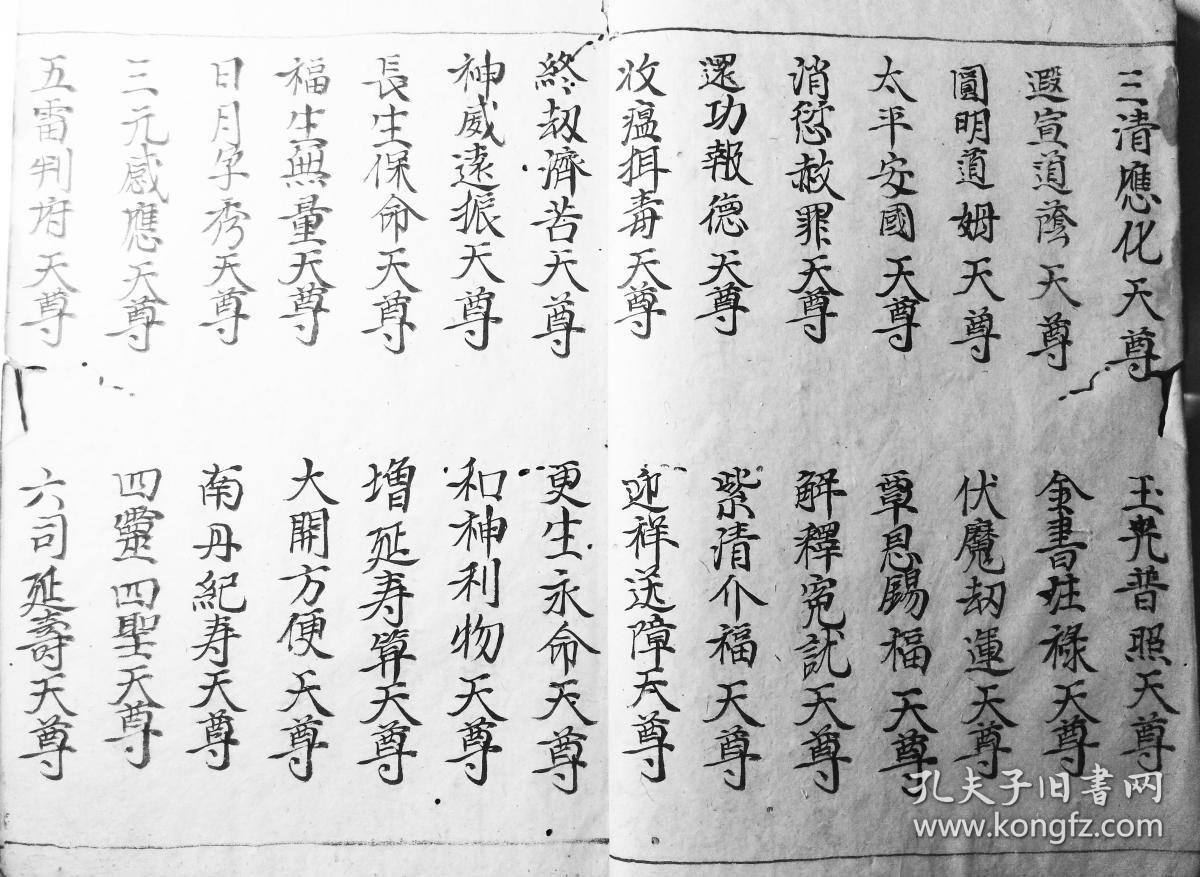 三清應化天尊
玉光普照天尊
遐宣道蔭天尊
金書註祿天尊
圓明道姆天尊
伏魔劫運天尊
太平安國天尊
覃恩錫福天尊
消愆赦罪天尊
解釋冤訧天尊
還功報德天尊
紫清介福天尊
收瘟攝毒天尊
迎祥送障天尊
終劫濟苦天尊
更生永命天尊
神威遠振天尊
和神利物天尊
長生保命天尊
增延寿算天尊
福生無量天尊
大開方便天尊
日月孕秀天尊
南丹紀寿天尊
三元感應天尊
四靈四聖天尊
五雷判府天尊
六司延壽天尊
孔夫子旧书网
www.kongfz.com